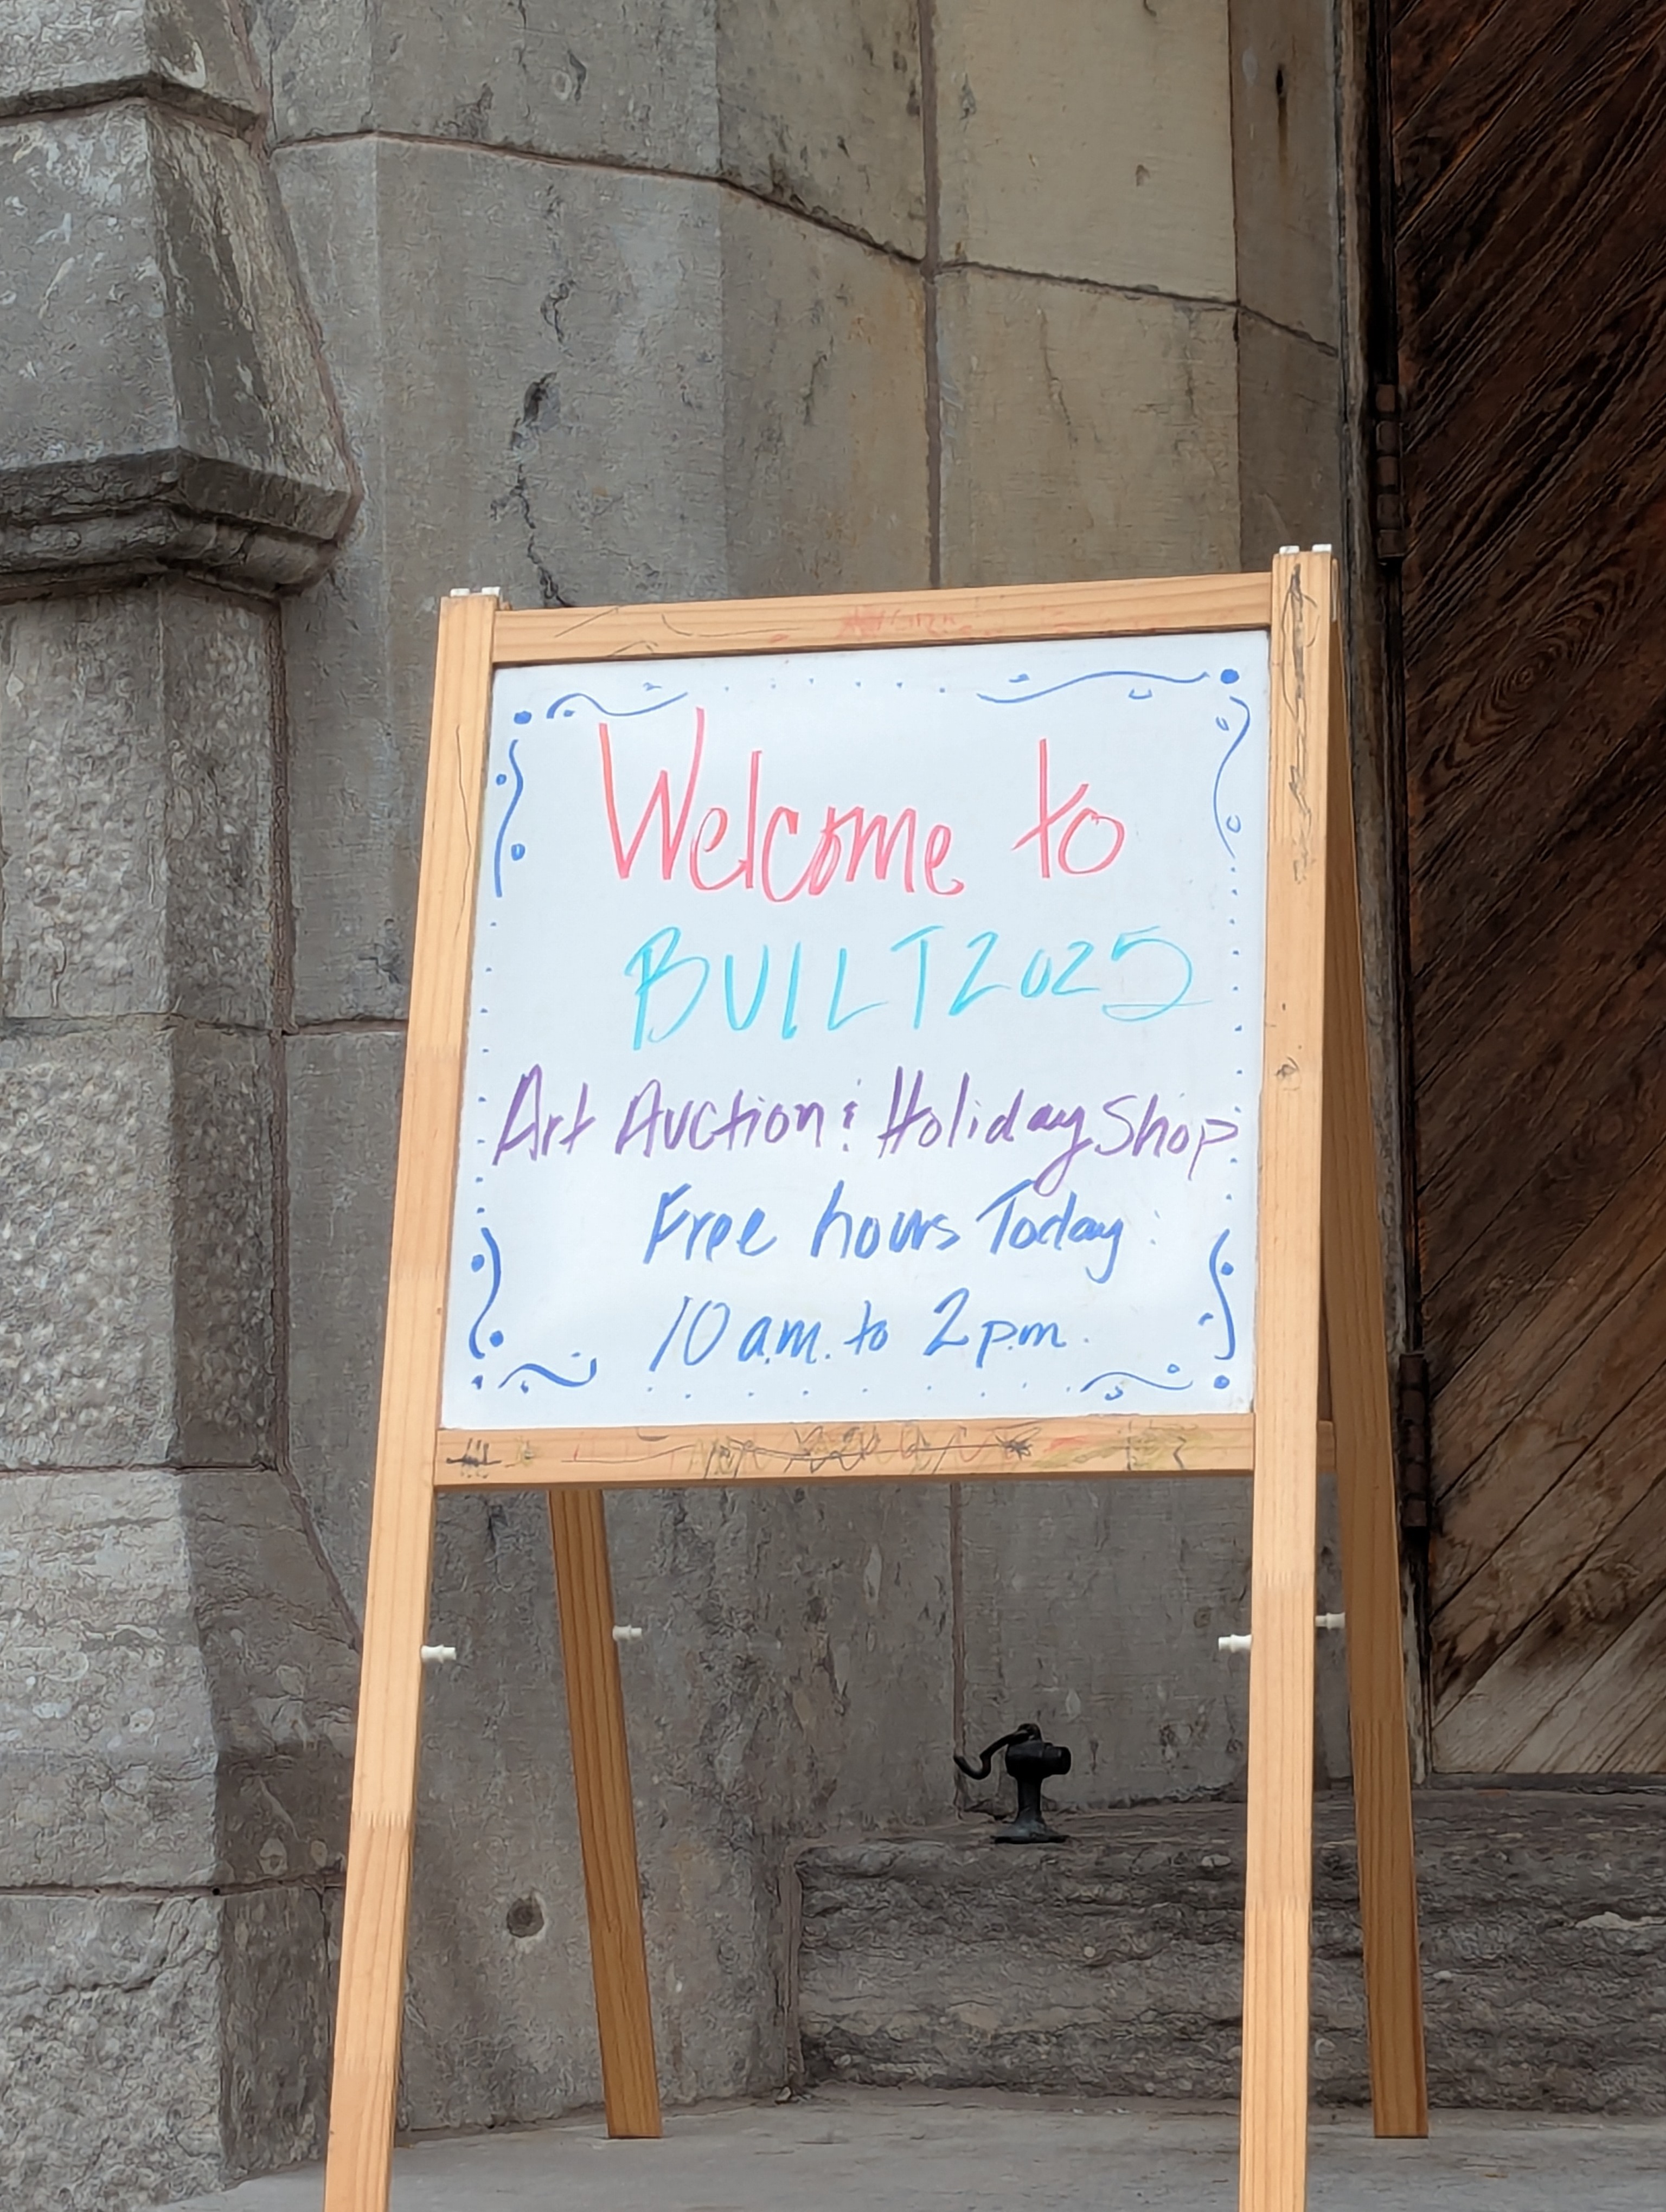 Welcome to
BUILT 2025
Art Auction & Holiday Shop
Free hours Today:
10 a.m. to 2 p.m.